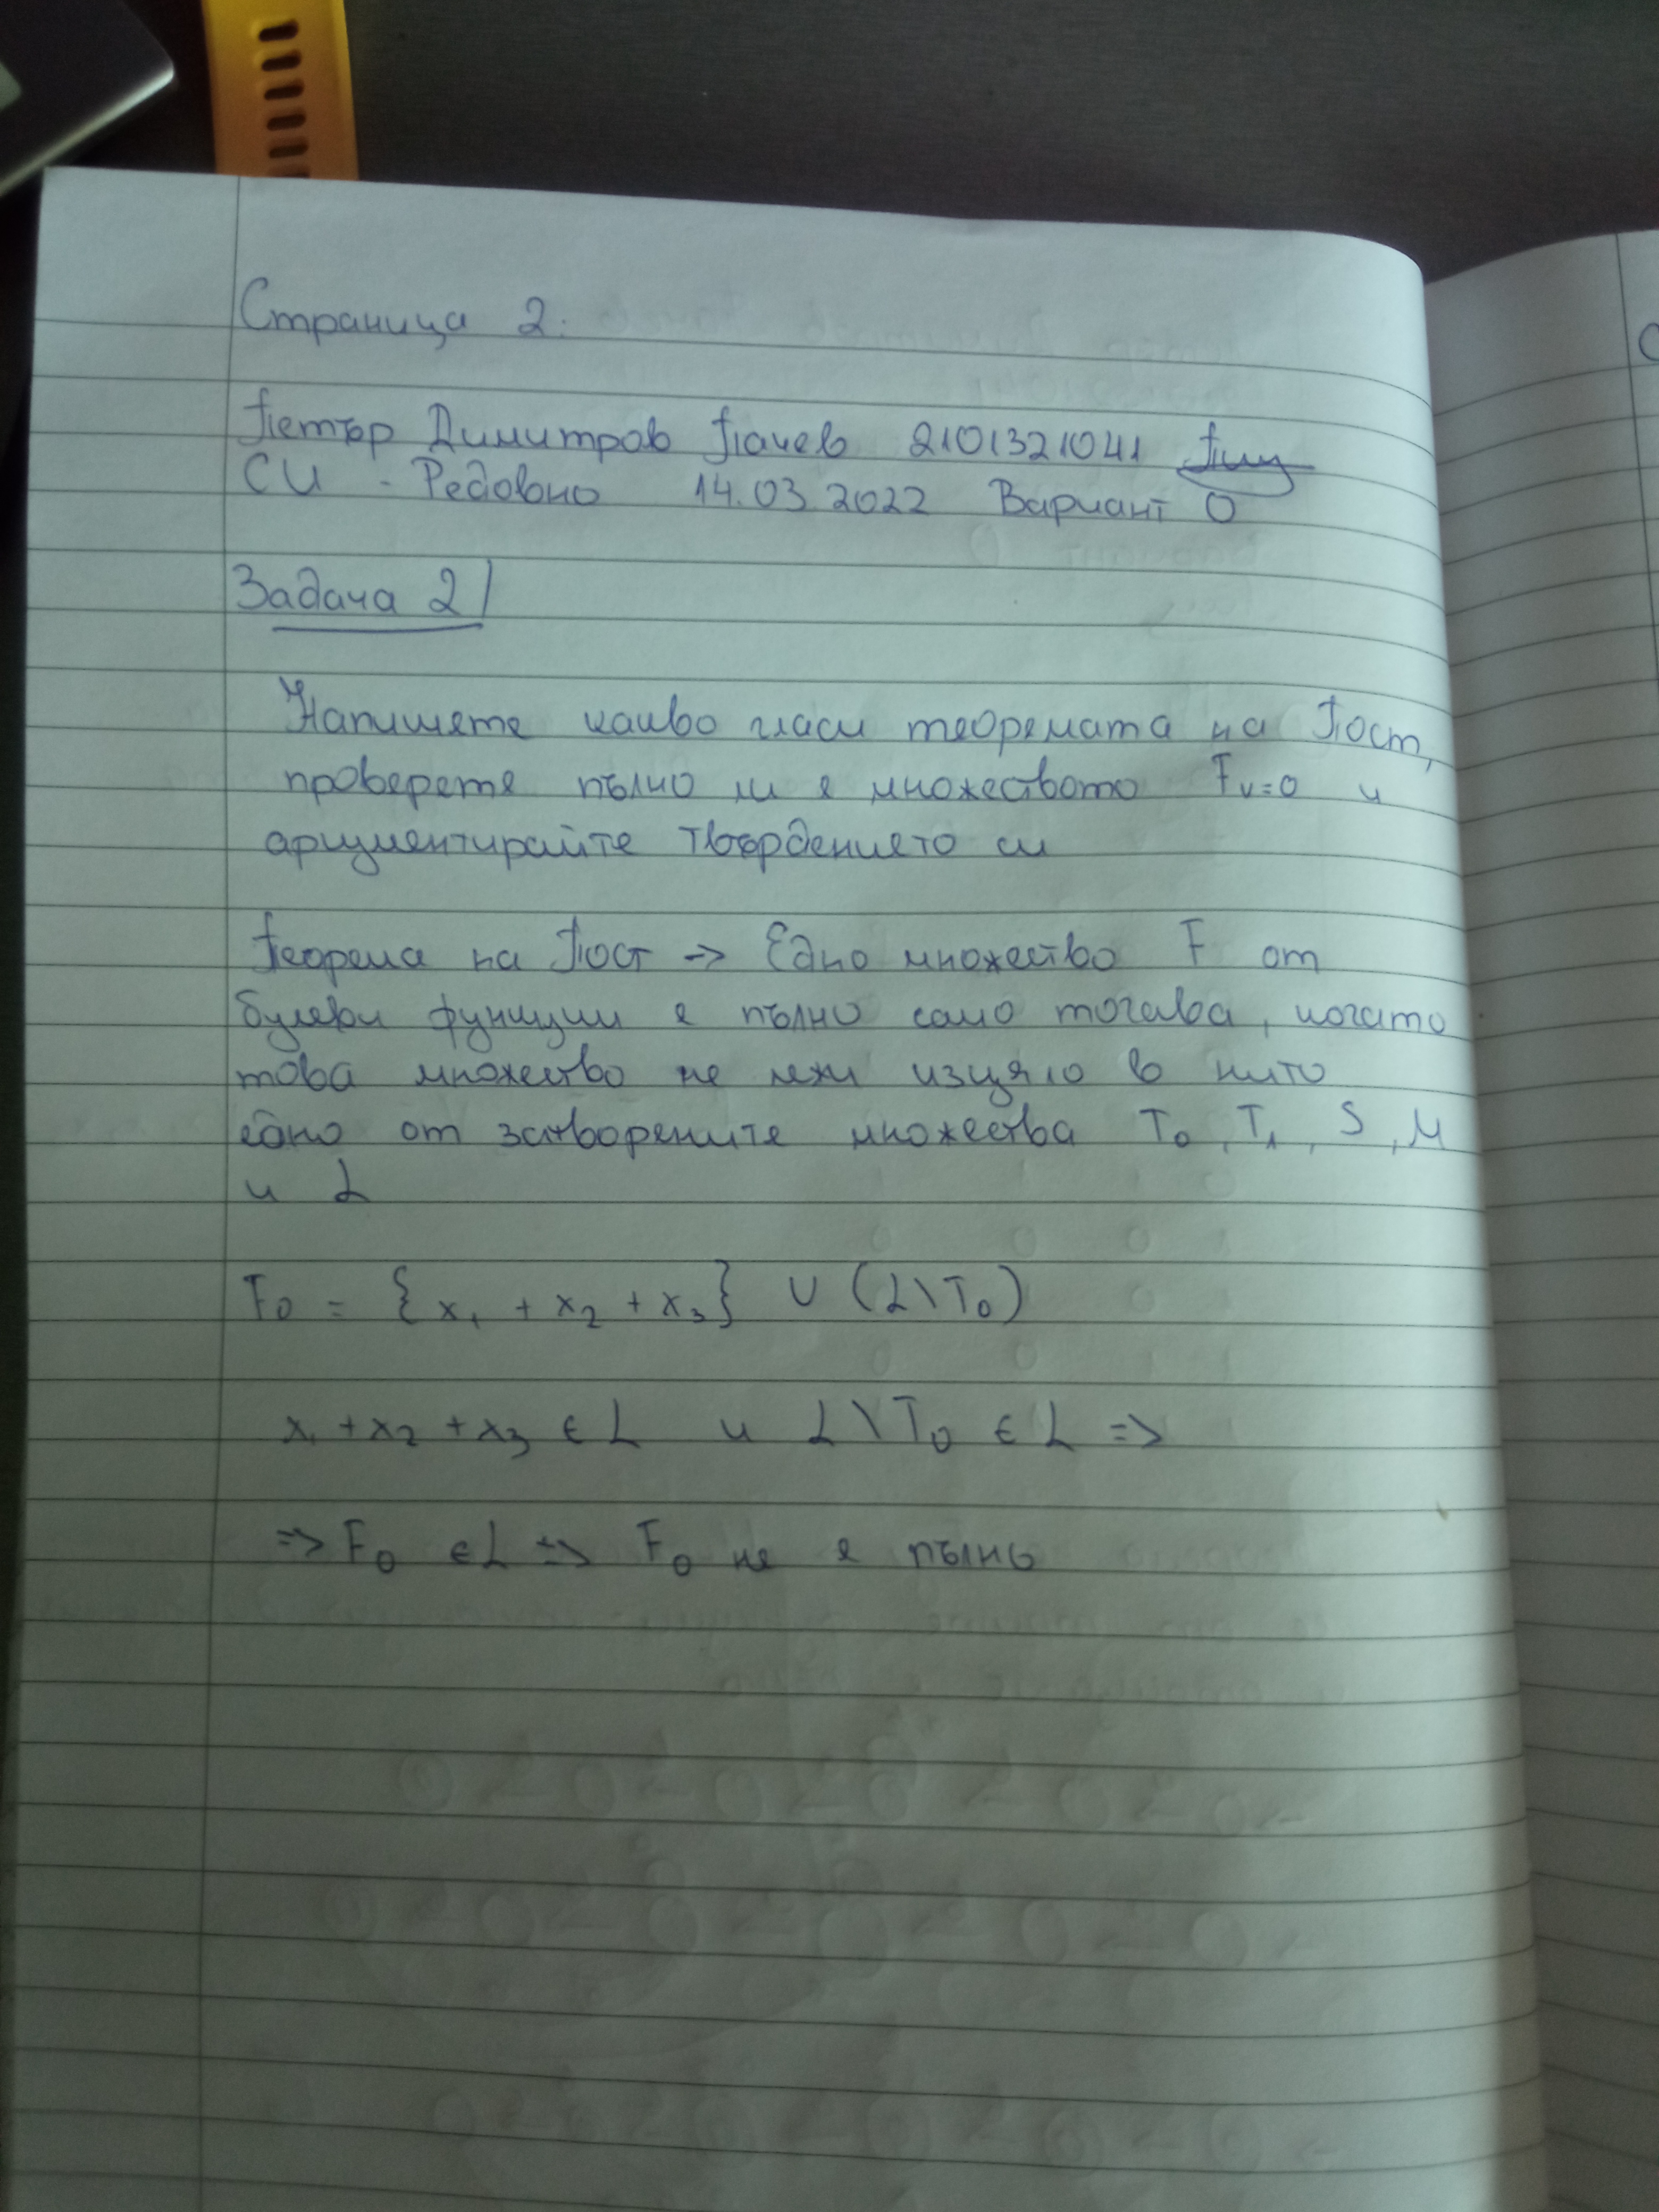 Страница 2.
Петър Димитров Пачев 2101321041
СИ - Редовно 14.03.2022 Вариант 0
Задача 2
Напишете какво гласи теоремата на Пост,
проверете пълно ли е множеството Fv=0 и
аргументирайте твърдението си
Теорема на Пост -> Едно множество F от
булеви функции е пълно само тогава, когато
това множество не лежи изцяло в нито
едно от затворените множества T₀, T₁, S, M
и L
F₀ = {x₁ + x₂ + x₃} ∪ (L\T₀)
x₁ + x₂ + x₃ ∈ L и L\T₀ ∈ L =>
=> F₀ ∈ L => F₀ не е пълно